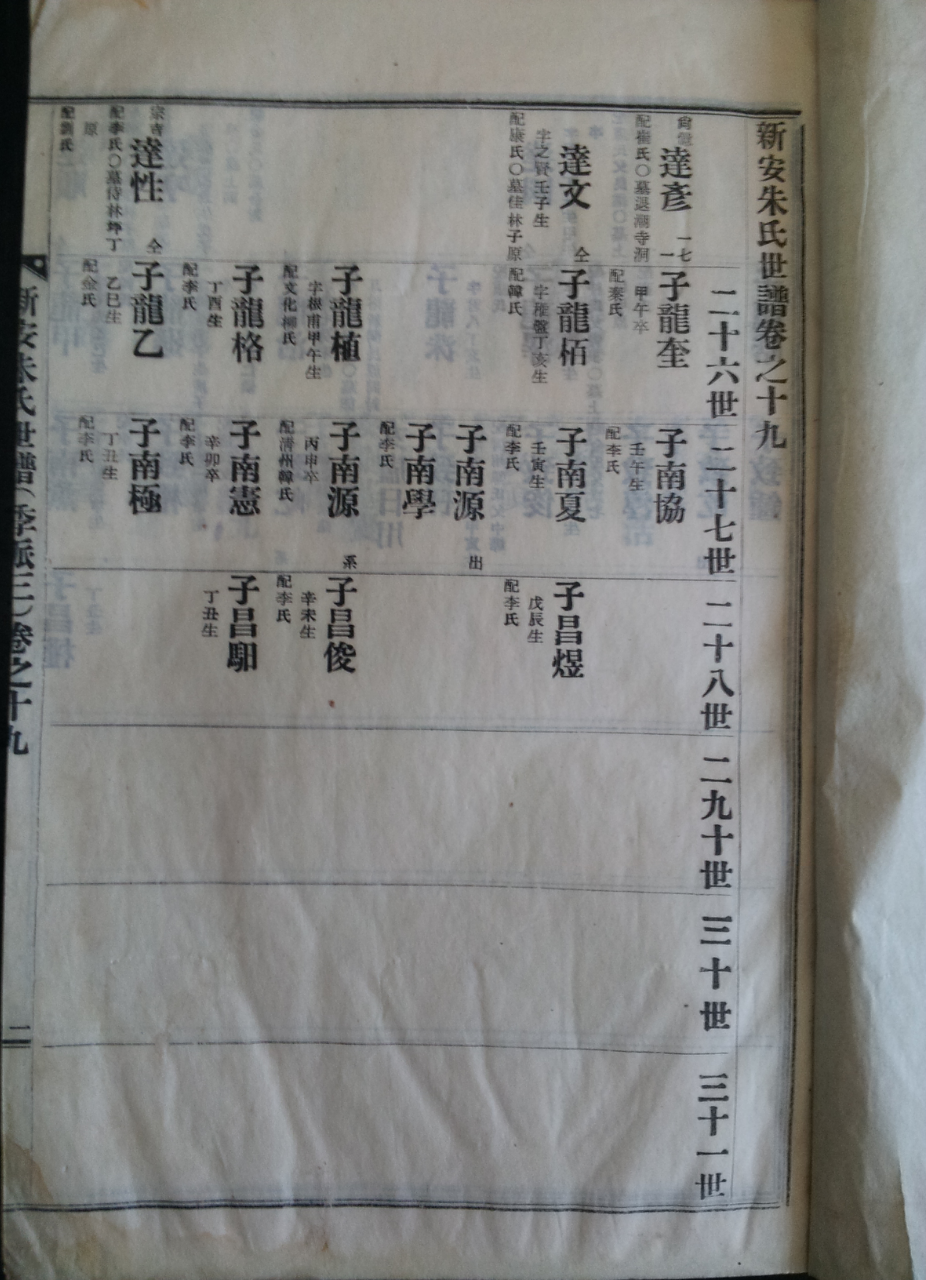 新安朱氏世譜卷之十九
二十六世
二十七世
二十八世
二九十世
三十世
三十一世
達彥
一七
配崔氏○墓退潮寺洞
子龍奎
甲午卒
配秦氏
子南協
壬午生
配李氏
達文
仝
字之賢壬子生
配康氏○墓佳林子原
子龍栢
字稚盤丁亥生
配韓氏
子南夏
壬寅生
配李氏
子昌煜
戊辰生
配李氏
子南源
出
子南學
配李氏
子龍植
字根甫甲午生
配文化柳氏
子南源
系
丙申卒
配清州韓氏
子昌俊
辛未生
配李氏
子龍格
丁酉生
配李氏
子南憲
辛卯卒
配李氏
子昌馹
丁丑生
宗吉
達性
仝
配李氏○墓侍林坪丁
原
配劉氏
子龍乙
乙巳生
配金氏
子南極
丁丑生
配李氏
新安朱氏世譜(季派三)卷之十九
二